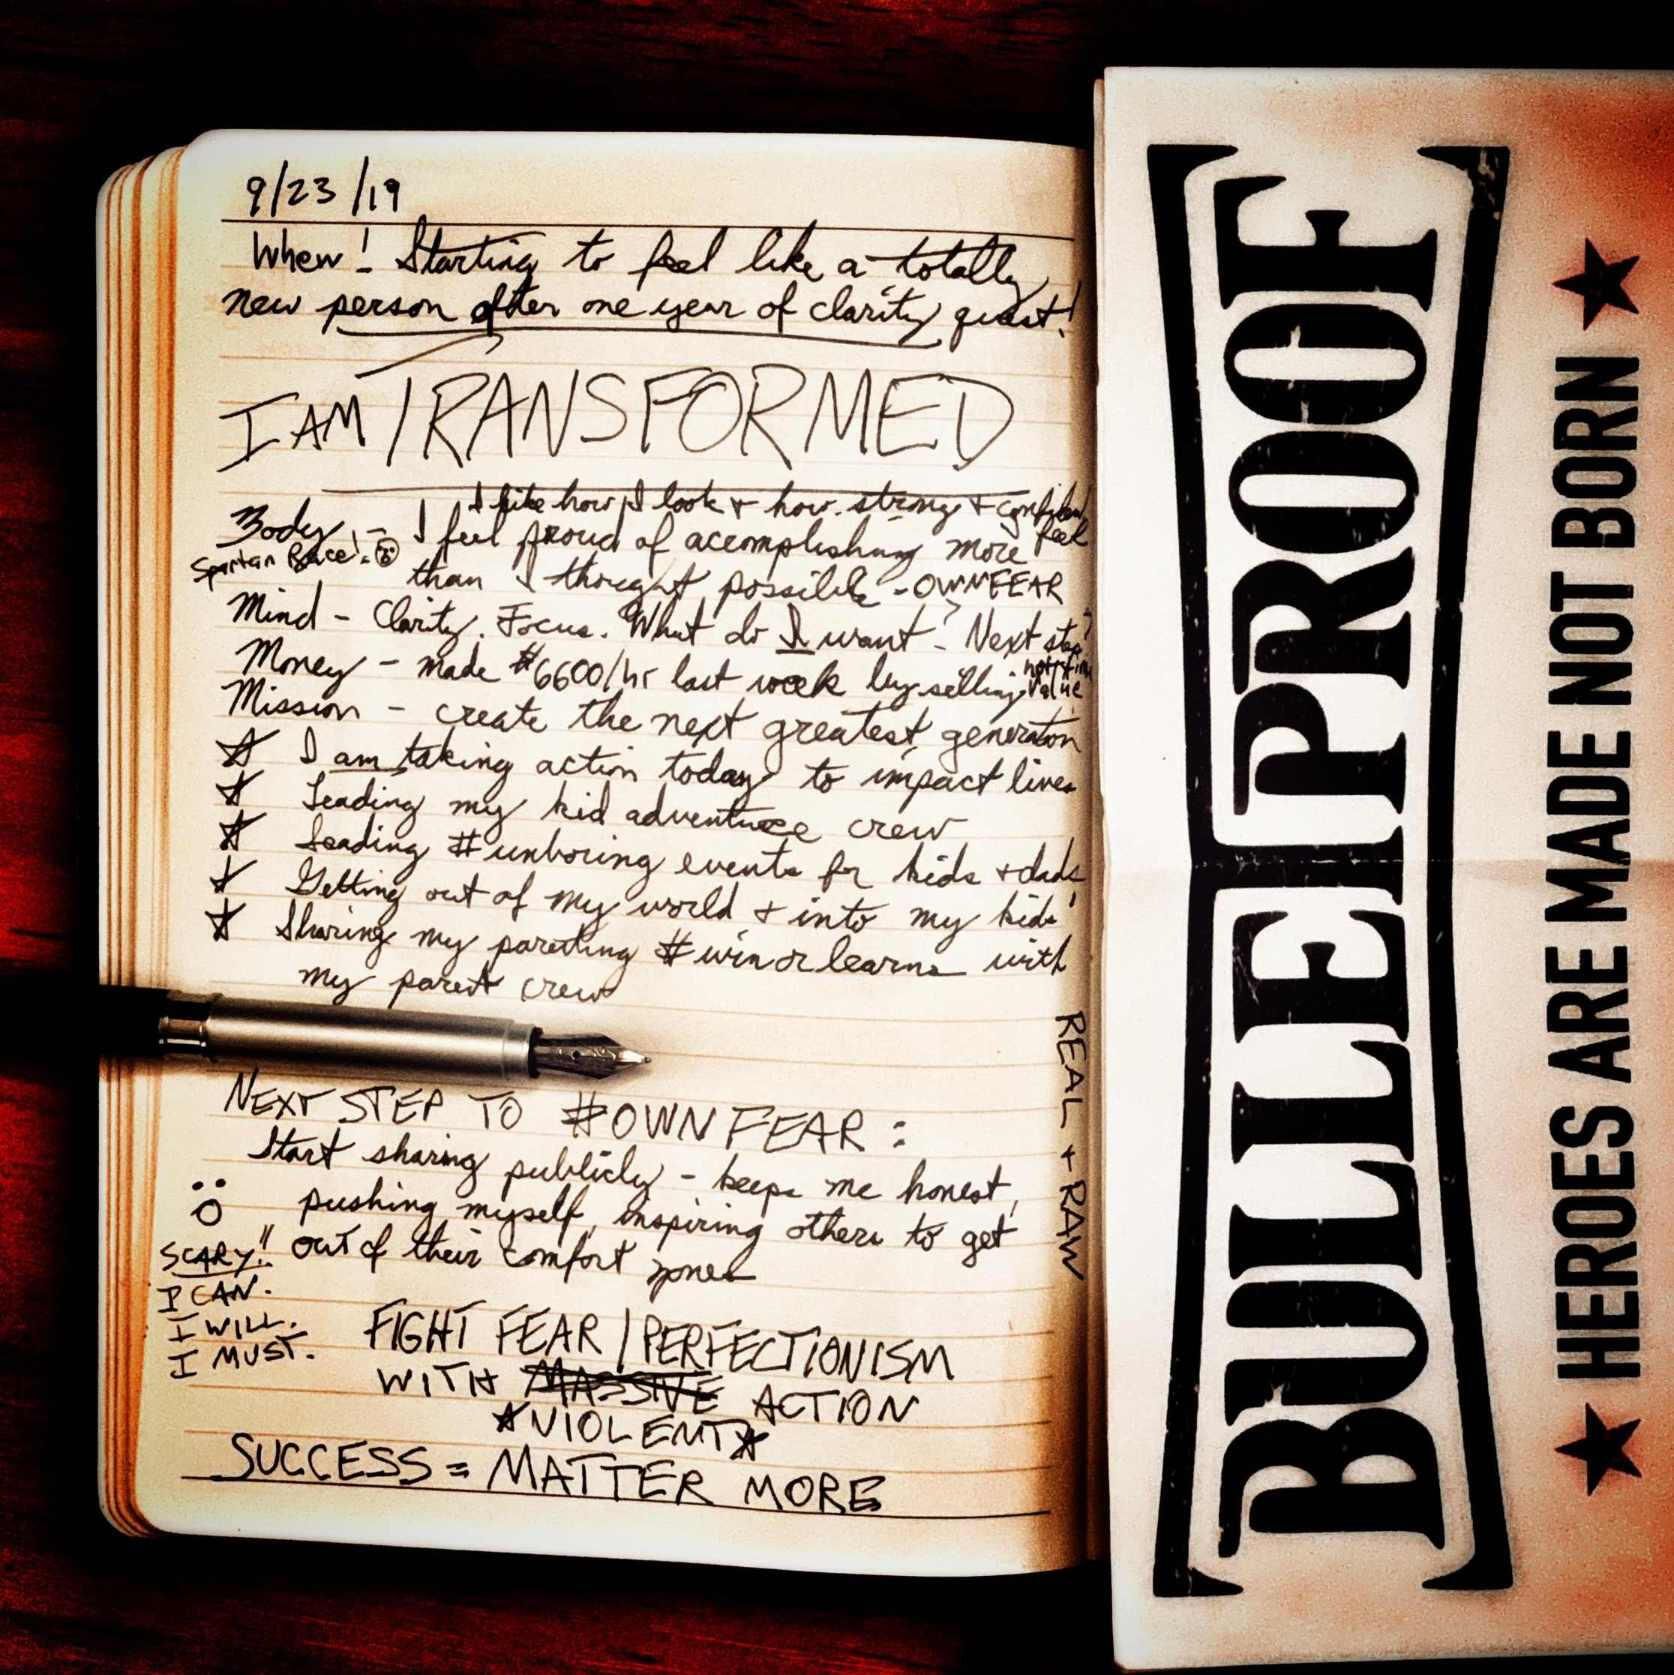 9/23/19
Whew! Starting to feel like a totally
new person after one year of clarity quest!
I AM TRANSFORMED
I like how I look + how strong + confident
feel
Body - I feel proud of accomplishing more
Spartan Race!
than I thought possible - OWNFEAR
Mind - Clarity. Focus. What do I want? Next step?
Money - made $6600/hr last week by selling not time
value
Mission - create the next greatest generation
☆ I am taking action today to impact lives
☆ Leading my kid adventure crew
☆ Leading #unboring events for kids + dads
☆ Getting out of my world + into my kids'
☆ Sharing my parenting #winorlearns with
my parent crew
NEXT STEP TO #OWNFEAR:
Start sharing publicly - keeps me honest,
pushing myself, inspiring others to get
out of their comfort zones
SCARY!!
I CAN.
I WILL.
I MUST.
FIGHT FEAR / PERFECTIONISM
WITH MASSIVE ACTION
☆VIOLENT☆
SUCCESS = MATTER MORE
REAL + RAW
BULLETPROOF
★ HEROES ARE MADE NOT BORN ★